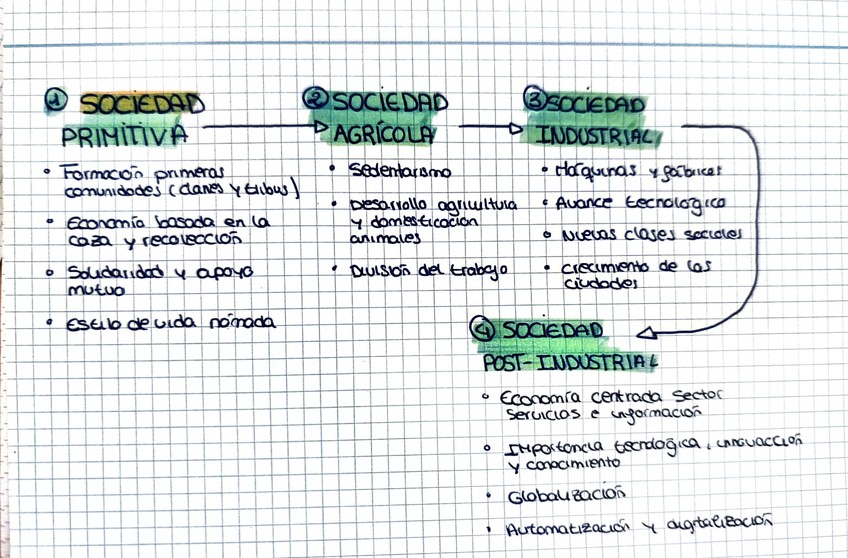 ① SOCIEDAD
PRIMITIVA
• Formación primeras
comunidades (clanes y tribus)
• Economía basada en la
caza y recolección
• Solidaridad y apoyo
mutuo
• Estilo de vida nómada
② SOCIEDAD
AGRÍCOLA
• Sedentarismo
• Desarrollo agricultura
y domesticación
animales
• División del trabajo
③ SOCIEDAD
INDUSTRIAL
• Máquinas y fábricas
• Avance tecnológico
• Nuevas clases sociales
• Crecimiento de las
ciudades
④ SOCIEDAD
POST-INDUSTRIAL
• Economía centrada sector
servicios e información
• Importancia tecnológica, innovacción
y conocimiento
• Globalización
• Automatización y digitalización